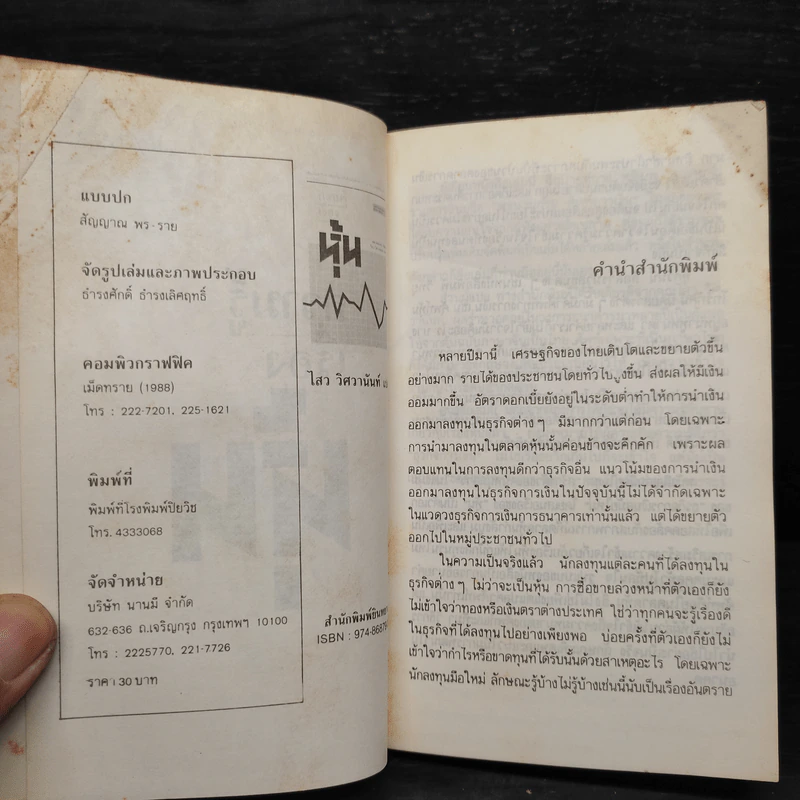 แบบปก
สัญญาณ พร-ราย
จัดรูปเล่มและภาพประกอบ
ธำรงศักดิ์ ธำรงเลิศฤทธิ์
คอมพิวกราฟฟิค
เม็ดทราย (1988)
โทร : 222-7201, 225-1621
พิมพ์ที่
พิมพ์ที่โรงพิมพ์ปิยวิช
โทร. 4333068
จัดจำหน่าย
บริษัท นานมี จำกัด
632-636 ถ.เจริญกรุง กรุงเทพฯ 10100
โทร : 2225770, 221-7726
ราคา 30 บาท
หุ้น
ไสว วิศวานันท์
สำนักพิมพ์
ISBN : 974-8687
คำนำสำนักพิมพ์
หลายปีมานี้ เศรษฐกิจของไทยเติบโตและขยายตัวขึ้น
อย่างมาก รายได้ของประชาชนโดยทั่วไปสูงขึ้น ส่งผลให้มีเงิน
ออมมากขึ้น อัตราดอกเบี้ยยังอยู่ในระดับต่ำทำให้การนำเงิน
ออกมาลงทุนในธุรกิจต่างๆ มีมากกว่าแต่ก่อน โดยเฉพาะ
การนำมาลงทุนในตลาดหุ้นนั้นค่อนข้างจะคึกคัก เพราะผล
ตอบแทนในการลงทุนดีกว่าธุรกิจอื่น แนวโน้มของการนำเงิน
ออกมาลงทุนในธุรกิจการเงินในปัจจุบันนี้ไม่ได้จำกัดเฉพาะ
ในแวดวงธุรกิจการเงินการธนาคารเท่านั้นแล้ว แต่ได้ขยายตัว
ออกไปในหมู่ประชาชนทั่วไป
ในความเป็นจริงแล้ว นักลงทุนแต่ละคนที่ได้ลงทุนใน
ธุรกิจต่างๆ ไม่ว่าจะเป็นหุ้น การซื้อขายล่วงหน้าที่ตัวเองก็ยัง
ไม่เข้าใจว่าทองหรือเงินตราต่างประเทศ ใช่ว่าทุกคนจะรู้เรื่องดี
ในธุรกิจที่ได้ลงทุนไปอย่างเพียงพอ บ่อยครั้งที่ตัวเองก็ยังไม่
เข้าใจว่ากำไรหรือขาดทุนที่ได้รับนั้นด้วยสาเหตุอะไร โดยเฉพาะ
นักลงทุนมือใหม่ ลักษณะรู้บ้างไม่รู้บ้างเช่นนี้นับเป็นเรื่องอันตราย